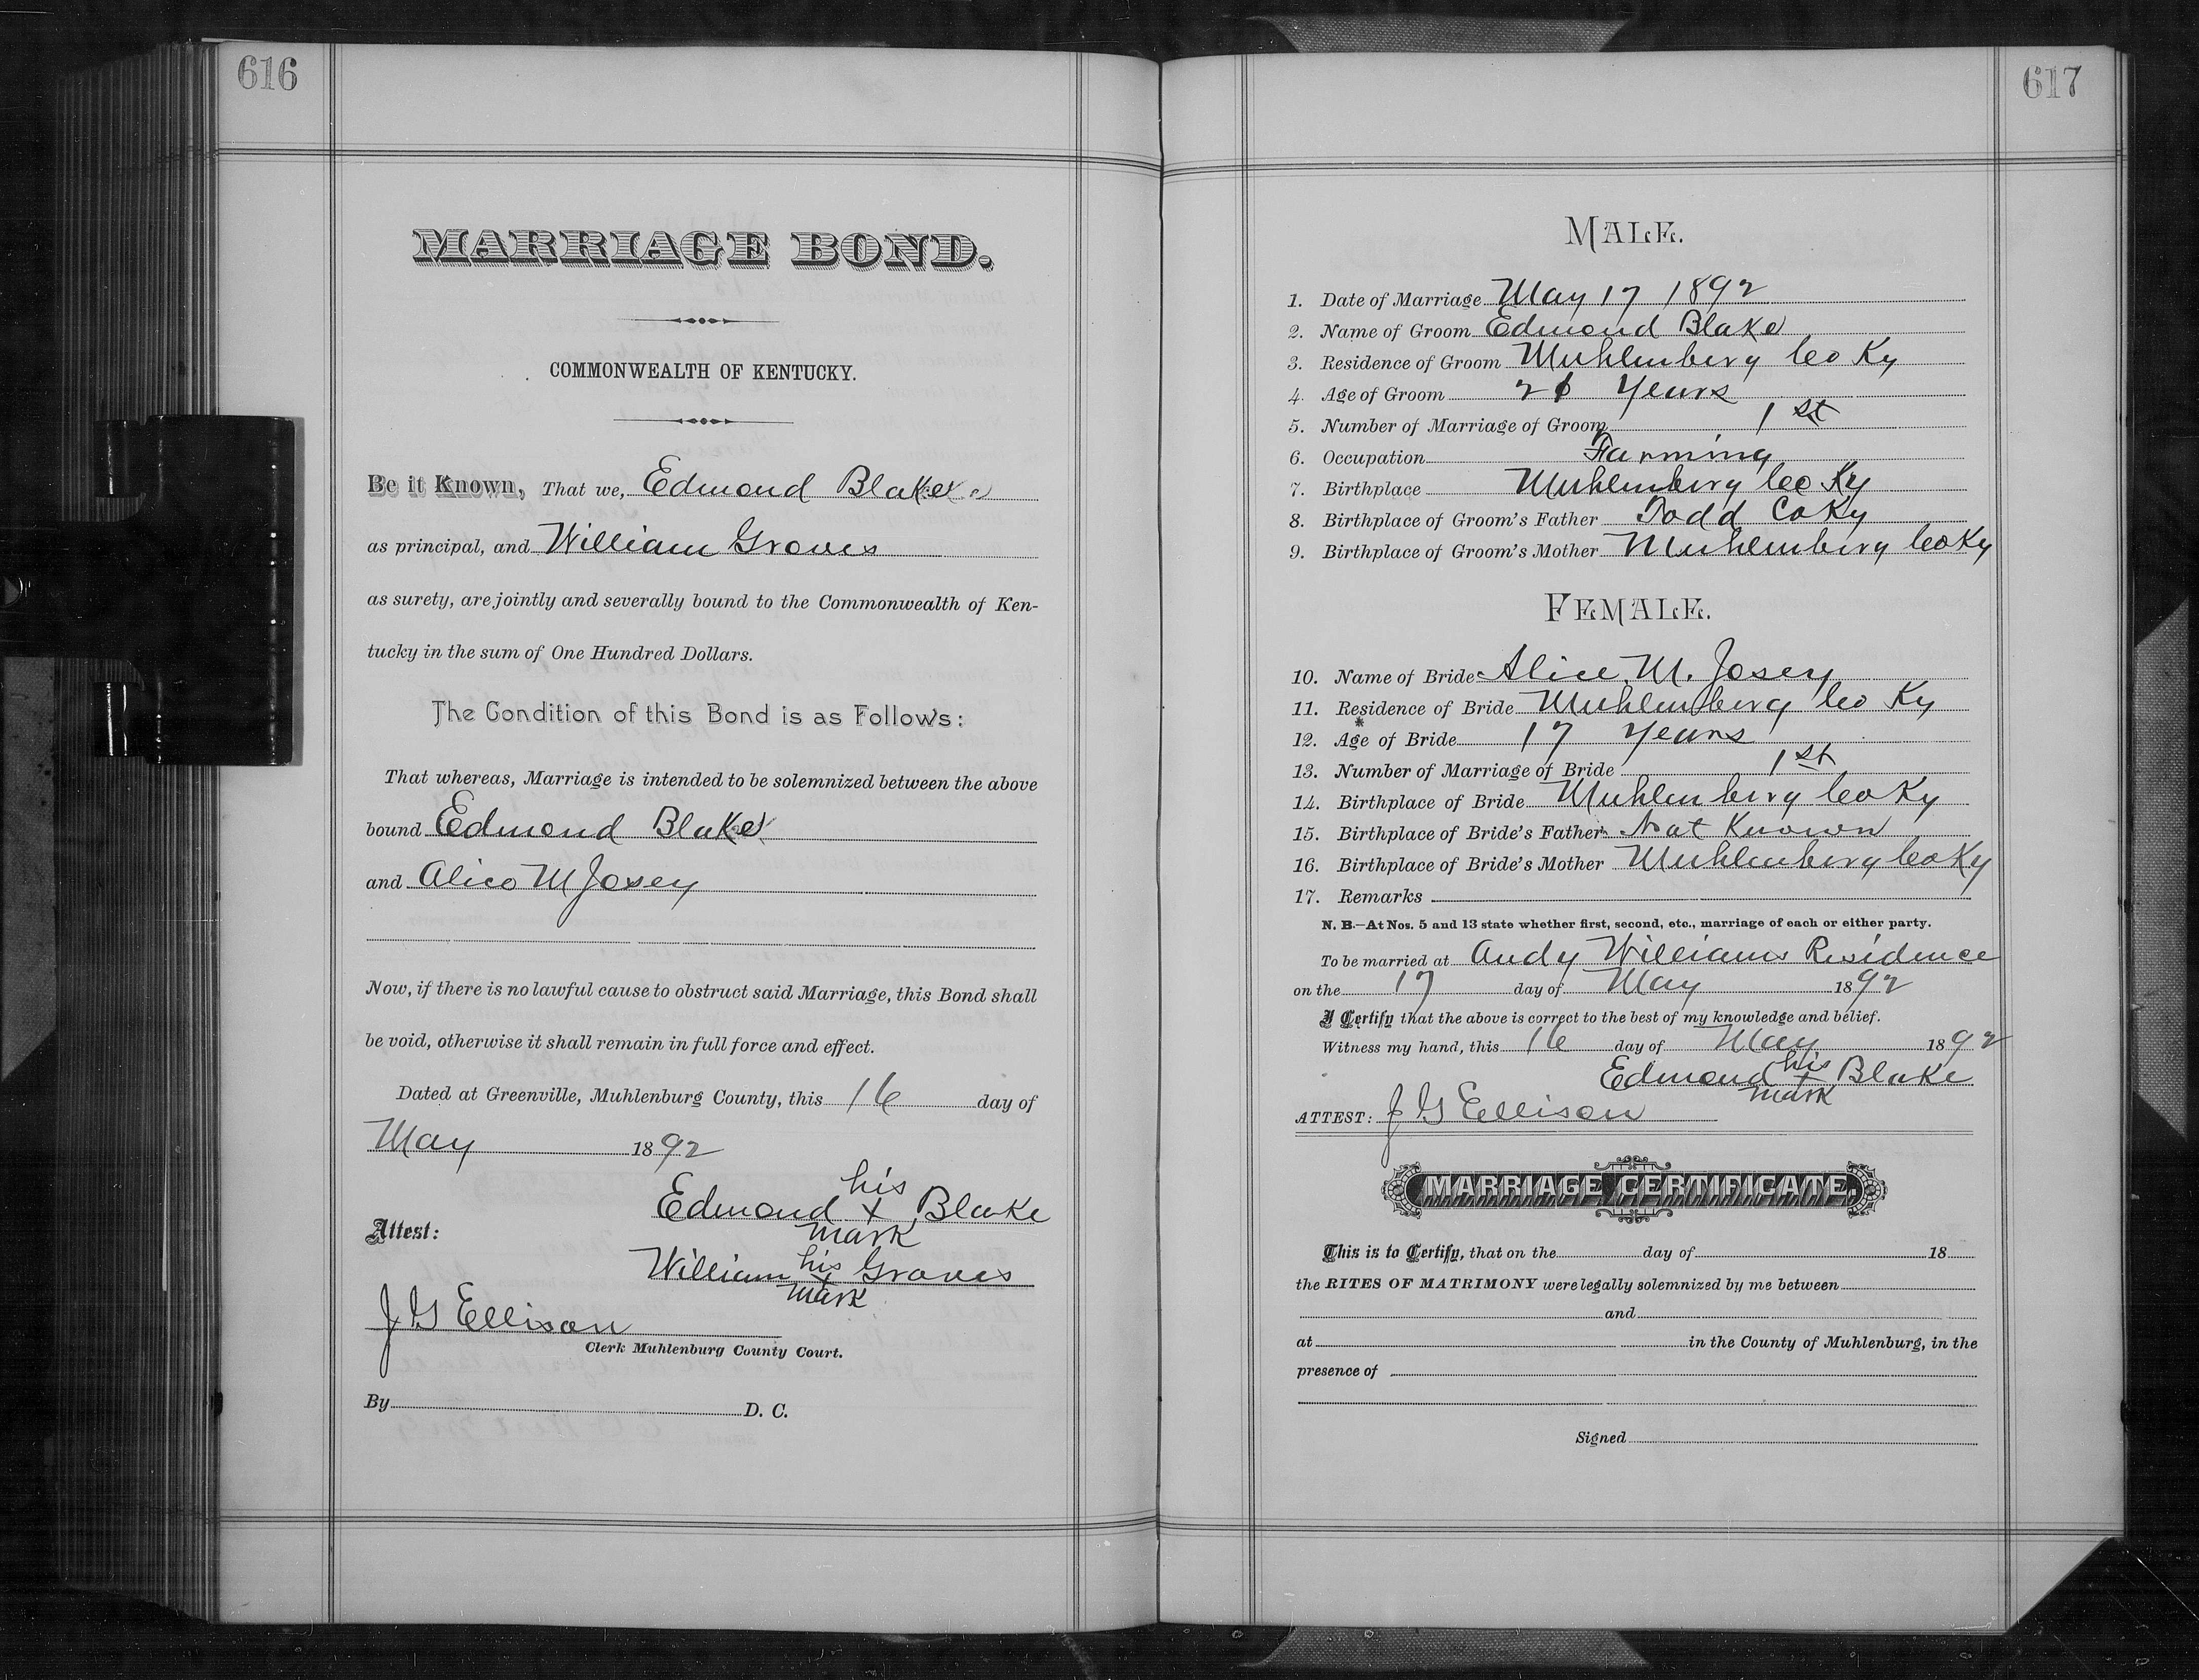 616
MARRIAGE BOND.
COMMONWEALTH OF KENTUCKY.
Be it Known, That we, Edmond Blake
as principal, and William Graves
as surety, are jointly and severally bound to the Commonwealth of Ken-
tucky in the sum of One Hundred Dollars.
The Condition of this Bond is as Follows:
That whereas, Marriage is intended to be solemnized between the above
bound Edmond Blake
and Alice M Josey
Now, if there is no lawful cause to obstruct said Marriage, this Bond shall
be void, otherwise it shall remain in full force and effect.
Dated at Greenville, Muhlenburg County, this 16 day of
May 1892
his
Edmond x Blake
mark
Attest:
his
William x Graves
mark
J G Ellison
Clerk Muhlenburg County Court.
By D. C.
617
MALE.
1. Date of Marriage May 17 1892
2. Name of Groom Edmond Blake
3. Residence of Groom Muhlenberg Co Ky
4. Age of Groom Years
5. Number of Marriage of Groom 1st
6. Occupation Farming
7. Birthplace Muhlenberg Co Ky
8. Birthplace of Groom's Father Todd Co Ky
9. Birthplace of Groom's Mother Muhlenberg Co Ky
FEMALE.
10. Name of Bride Alice M. Josey
11. Residence of Bride Muhlenberg Co Ky
12. Age of Bride 17 Years
13. Number of Marriage of Bride 1st
14. Birthplace of Bride Muhlenberg Co Ky
15. Birthplace of Bride's Father Not Known
16. Birthplace of Bride's Mother Muhlenberg Co Ky
17. Remarks
N. B.—At Nos. 5 and 13 state whether first, second, etc., marriage of each or either party.
To be married at Andy Williams Residence
on the 17 day of May 1892
I Certify that the above is correct to the best of my knowledge and belief.
Witness my hand, this 16 day of May 1892
his
Edmond x Blake
mark
ATTEST: J G Ellison
MARRIAGE CERTIFICATE.
This is to Certify, that on the day of 18
the RITES OF MATRIMONY were legally solemnized by me between
and
at in the County of Muhlenburg, in the
presence of
Signed